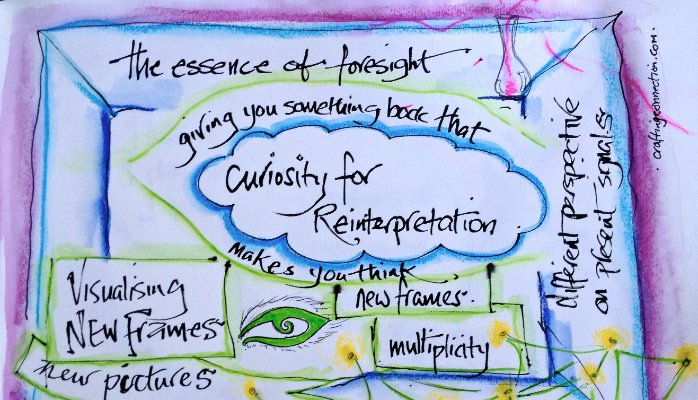 the essence of foresight
giving you something back that
Curiosity for
Reinterpretation
makes you think
Visualising
NEW Frames
new pictures
new frames.
multiplicity
different perspective
on present signals
craftingconnection.com